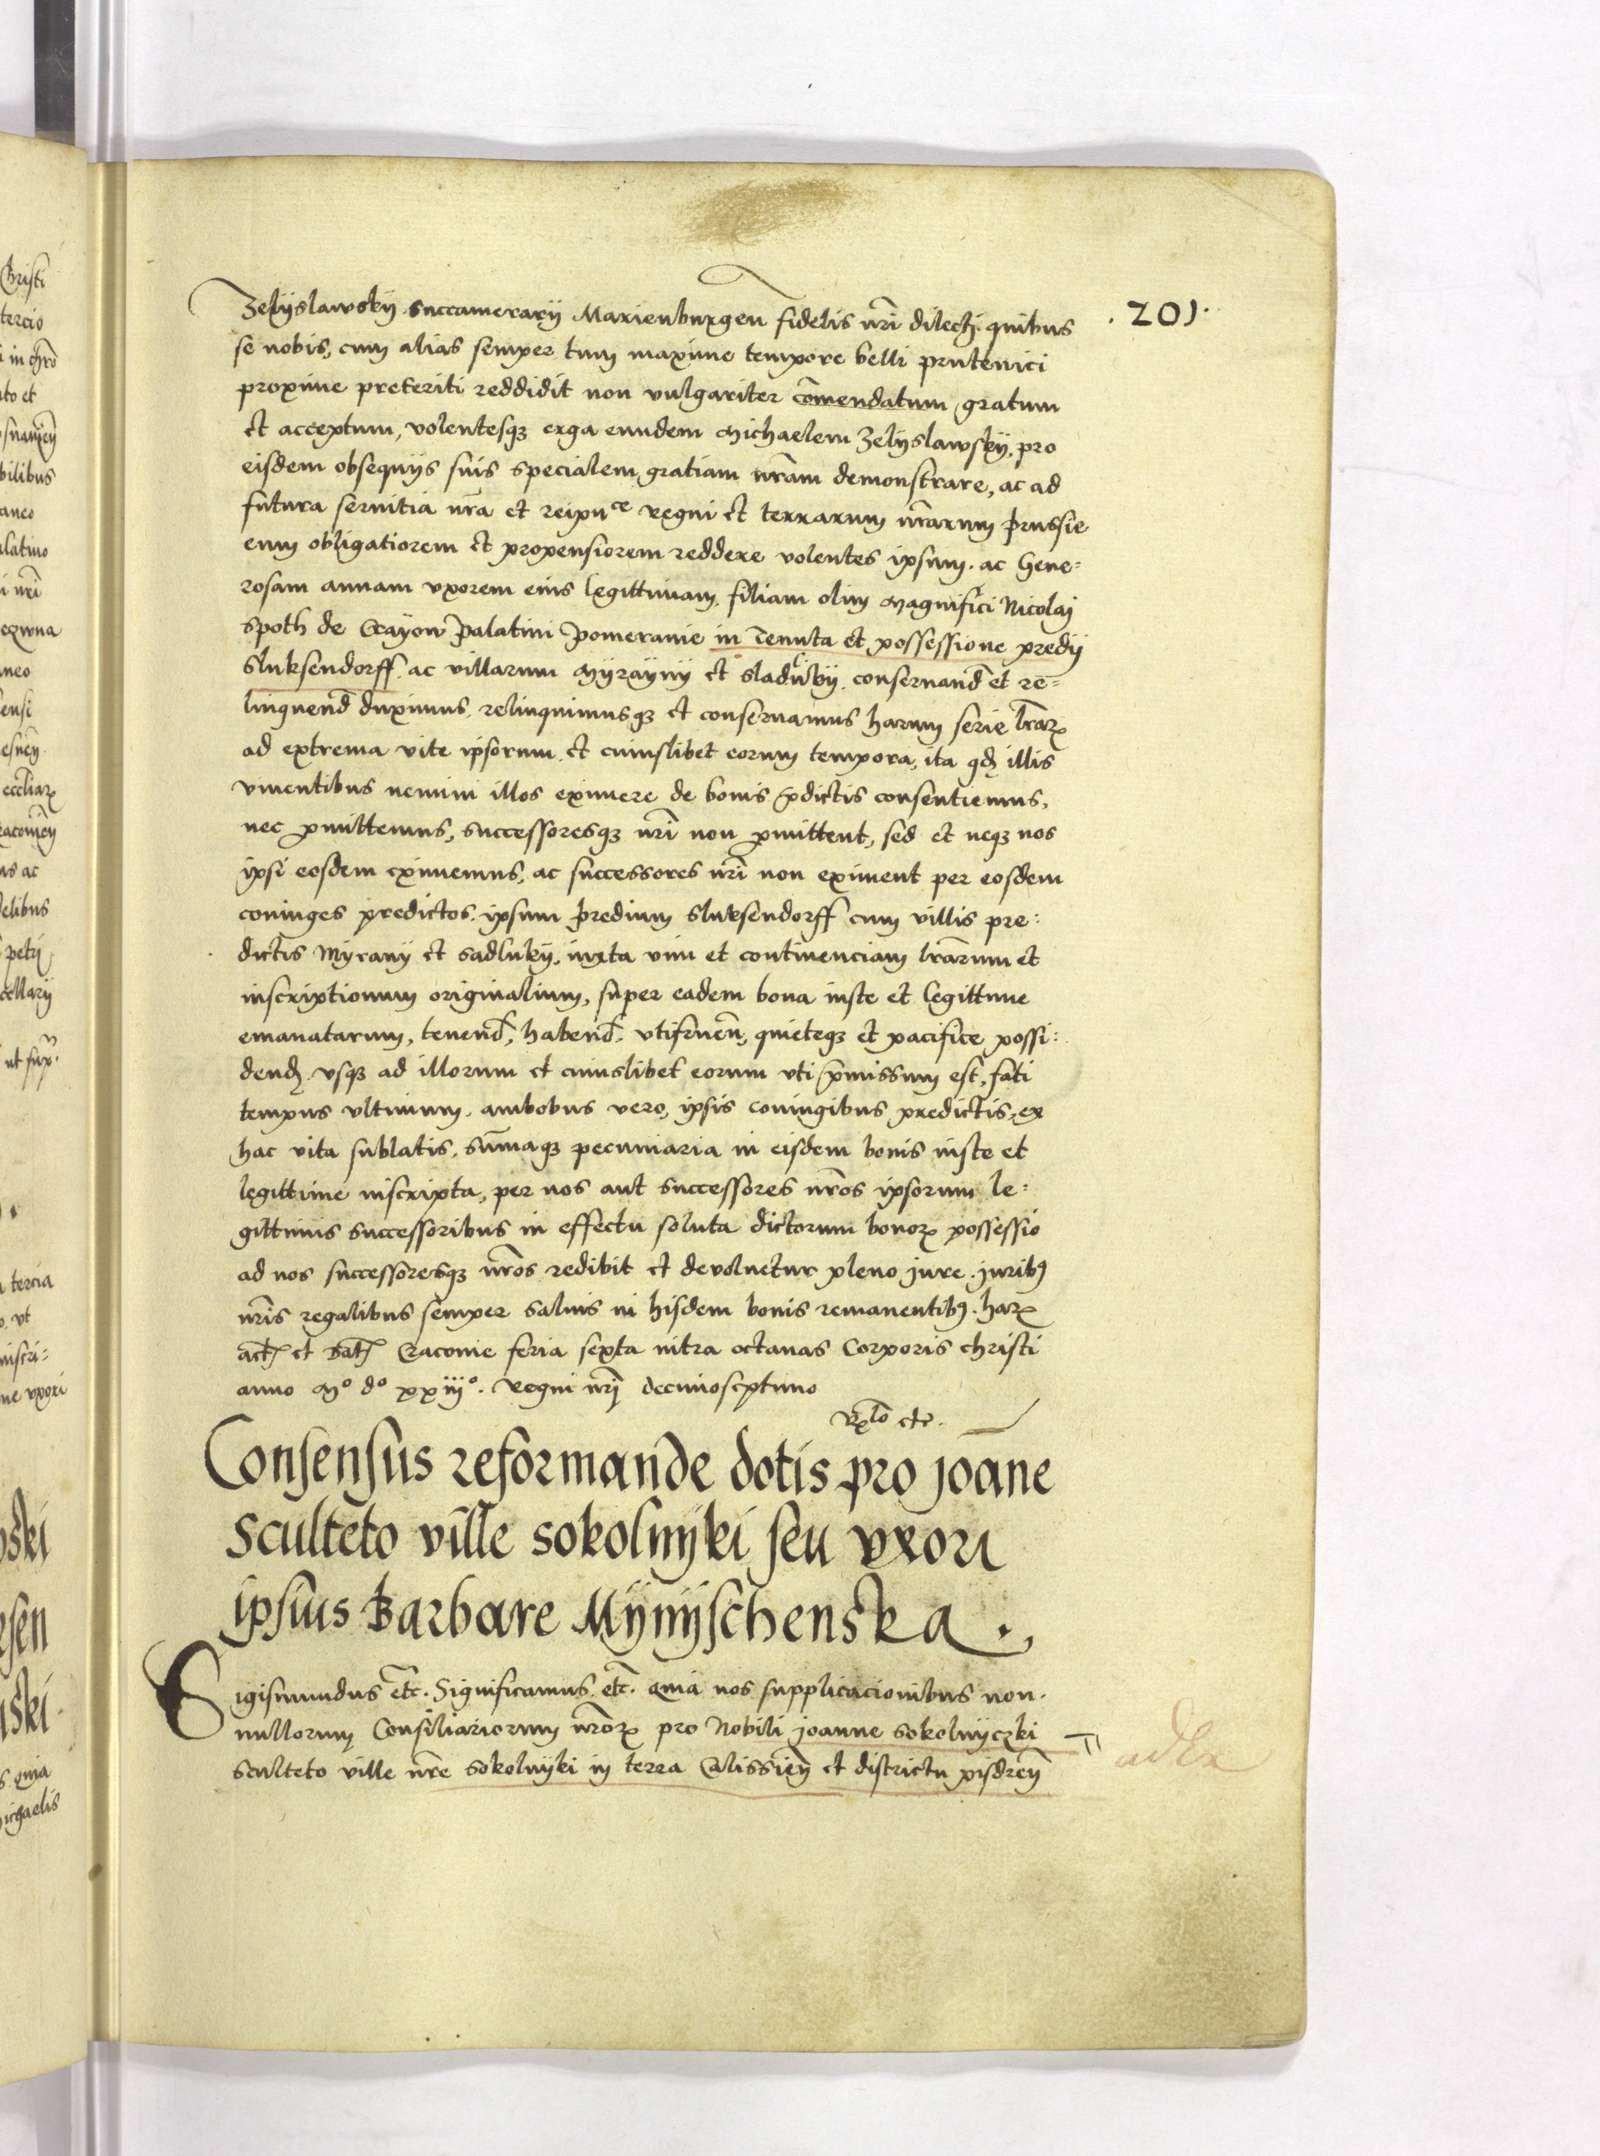 .201.
Zelyslawsky succamerarÿ Marienburgen̄ fidelis nr̄i dilecti quibus
se nobis, cum alias semper tum maxime tempore belli prutenici
proxime preteriti reddidit non vulgariter com̄endatum gratum
et acceptum, volentesqꝫ erga eundem Michaelem Zelyslawskÿ, pro
eisdem obsequÿs suis specialem gratiam nr̄am demonstrare, ac ad
futura seruitia nr̄a et reipu^ce regni et terrarum nr̄arum prussie
eum obligatiorem et propensiorem reddere volentes ipsum. ac Gene=
rosam annam vxorem eius legittimam, filiam olim Magnifici Nicolaj
spoth de Crayow palatini pomeranie in Tenuta et possessione predÿ
sluksendorff. ac villarum Mÿraÿnÿ et sladuby. conseruand̄ et re=
linquend̄ duximus. relinquimusqꝫ et conseruamus harum serie lr̄arꝝ
ad extrema vite ipsorum et cuiuslibet eorum tempora, ita qd̄ illis
viuentibus nemini illos eximere de bonis p̄dictis consentiemus,
nec ꝑmittemus, successoresqꝫ nr̄i non ꝑmittent, sed et neqꝫ nos
ipsi eosdem eximemus, ac successores nr̄i non eximent per eosdem
coniuges predictos. ipsum predium sluksendorff cum villis pre=
dictis Myrany et sadluky, iuxta vim et continenciam lr̄arum et
inscriptionum originalium, super eadem bona iuste et legittime
emanatarum, tenend̄, habend̄. vtifruen̄, quieteqꝫ et pacifice possi=
dend̄. vsqꝫ ad illorum et cuiuslibet eorum vti p̄missum est, fati
tempus vltimum. ambobus vero, ipsis coniugibus predictis, ex
hac vita sublatis. sūmaqꝫ pecuniaria in eisdem bonis iuste et
legittime inscripta, per nos aut successores nr̄os ipsorum le=
gittimis successoribus in effectu soluta dictorum bonorꝝ possessio
ad nos successoresqꝫ nr̄os redibit et deuoluetur pleno jure. juribꝫ
nr̄is regalibus semper saluis in hisdem bonis remanentibꝫ. harꝝ
act̄ et dat̄ Cracouie feria sexta infra octauas Corporis christi
anno M° d° xxiij°. Regni nr̄j decimoseptimo
Consensus reformande dotis pro joane
sculteto ville sokolnÿki seu vxori
ipsius Barbare Mÿnÿschenska.
Sigismundus etc̄. Significamus etc̄. quia nos supplicacionibus non
nullorum Consiliariorum nr̄orꝝ pro Nobili joanne sokolnyczki
sculteto ville nr̄e sokolnÿki in terra Calissien̄ et districtu pisdren̄